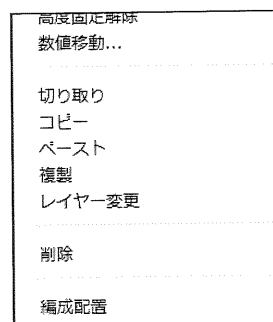 高度固定解除
数値移動...
切り取り
コピー
ペースト
複製
レイヤー変更
削除
編成配置